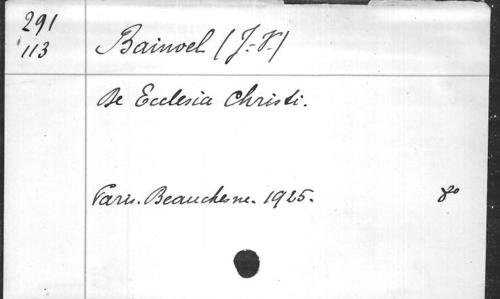 291
113
Bainvel (J-V.)
De Ecclesia Christi.
Paris. Beauchesne. 1925. 8o